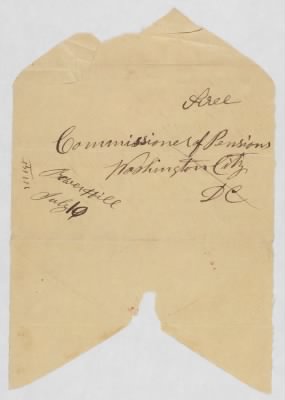 Free
Commissioner of Pensions
Washington City
DC
July 19